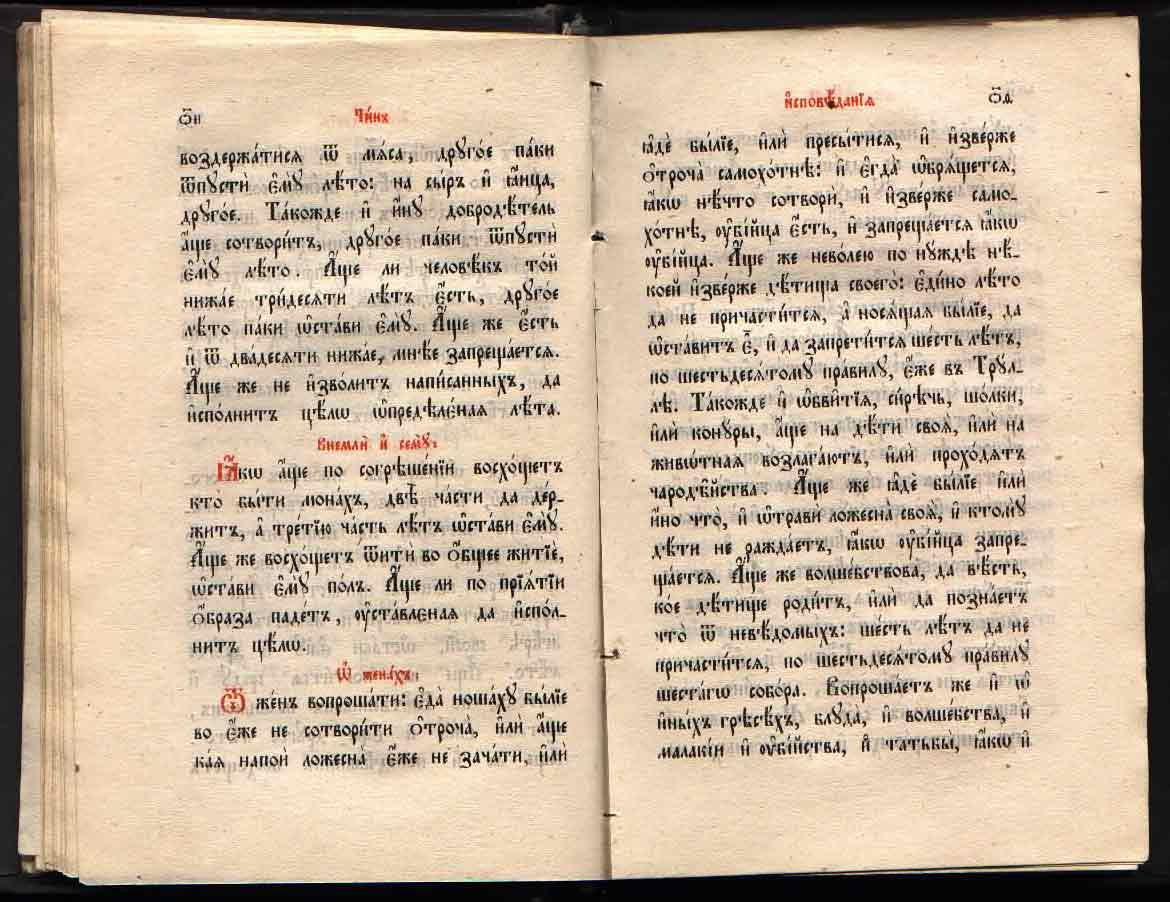 о҃и
Чи́нъ
воздержа́тися ѿ мѧ́са, друго́е па́ки
ѿпустѝ є҆мꙋ̀ лѣ́то: на сы́ръ и҆ ꙗ҆́ица,
друго́е. Та́кожде и҆ и҆́нꙋ добродѣ́тель
а҆́ще сотвори́тъ, друго́е па́ки ѿпустѝ
є҆мꙋ̀ лѣ́то. А҆́ще ли человѣ́къ то́й
нижа́е три́десѧти лѣ́тъ є҆́сть, друго́е
лѣ́то па́ки ѡ҆ста́ви є҆мꙋ̀. А҆́ще же є҆́сть
и҆ ѿ два́десѧти нижа́е, мнѣ́е запреща́етсѧ.
А҆́ще же не и҆зво́литъ напи́санныхъ, да
и҆спо́лнитъ цѣ́лѡ ѡ҆предѣле́наѧ лѣ́та.
Внемлѝ и҆ семꙋ̀:
Ꙗ҆́кѡ а҆́ще по согрѣше́нїи восхо́щетъ
кто̀ бы́ти мона́хъ, двѣ̀ ча́сти да дер-
жи́тъ, а҆ тре́тїю ча́сть лѣ́тъ ѡ҆ста́ви є҆мꙋ̀.
А҆́ще же восхо́щетъ ѿитѝ во ѻ҆́бщее житїе,
ѡ҆ста́ви є҆мꙋ̀ по́лъ. А҆́ще ли по прїѧ́тїи
ѻ҆́браза паде́тъ, ᲂу҆ста́вленаѧ да и҆спо́л-
нитъ цѣ́лѡ.
Ѡ҆ жена́хъ:
Ѿ же́нъ вопроша́ти: є҆да̀ ноша́хꙋ бы́лїе
во є҆́же не сотвори́ти ѻ҆троча̀, и҆лѝ а҆́ще
ка́ѧ напоѝ ложесна̀ є҆́же не зача́ти, и҆лѝ
о҃ѳ
и҆сповѣ́данїѧ
ꙗ҆дѐ бы́лїе, и҆лѝ пресы́тисѧ, и҆ и҆зве́рже
ѻ҆троча̀ самохо́тнѣ: и҆ є҆гда̀ ѡ҆брѧ́щетсѧ,
ꙗ҆́кѡ нѣ́что сотворѝ, и҆ и҆зве́рже само-
хо́тнѣ, ᲂу҆бі́йца є҆́сть, и҆ запреща́етсѧ ꙗ҆́кѡ
ᲂу҆бі́йца. А҆́ще же нево́лею по нꙋ́ждѣ нѣ́-
коей и҆зве́рже дѣ́тища своего̀: є҆ди́но лѣ́то
да не причасти́тсѧ, а҆ носѧ́щаѧ бы́лїе, да
ѡ҆ста́витъ є҆̀, и҆ да запрети́тсѧ ше́сть лѣ́тъ,
по шестьдесѧ́томꙋ пра́вилꙋ, є҆́же въ Трꙋл-
лѣ. Та́кожде и҆ ѡ҆бви́тїѧ, си́рѣчь, шо́лки,
и҆лѝ конꙋ́ры, а҆́ще на дѣ́ти своѧ̀, и҆лѝ на
живѡ́тнаѧ возлага́ютъ, и҆лѝ прохо́дѧтъ
чародѣ̑йства. А҆́ще же ꙗ҆дѐ бы́лїе и҆лѝ
и҆́но что̀, и҆ ѡ҆травѝ ложесна̀ своѧ̀, и҆ ктомꙋ̀
дѣ́ти не ражда́етъ, ꙗ҆́кѡ ᲂу҆бі́йца запре-
ща́етсѧ. А҆́ще же волше́бствова, да вѣ́сть,
ко́е дѣ́тище роди́тъ, и҆лѝ да позна́етъ
что̀ ѿ невѣ́домыхъ: ше́сть лѣ́тъ да не
причасти́тсѧ, по шестьдесѧ́томꙋ пра́вилꙋ
шеста́гѡ собо́ра. Вопроша́етъ же и҆ ѡ҆
и҆́ныхъ грѣсѣ́хъ, блꙋда̀, и҆ волше́бства, и҆
малакі́и и҆ ᲂу҆бі́йства, и҆ татьбы̀, ꙗ҆́кѡ и҆